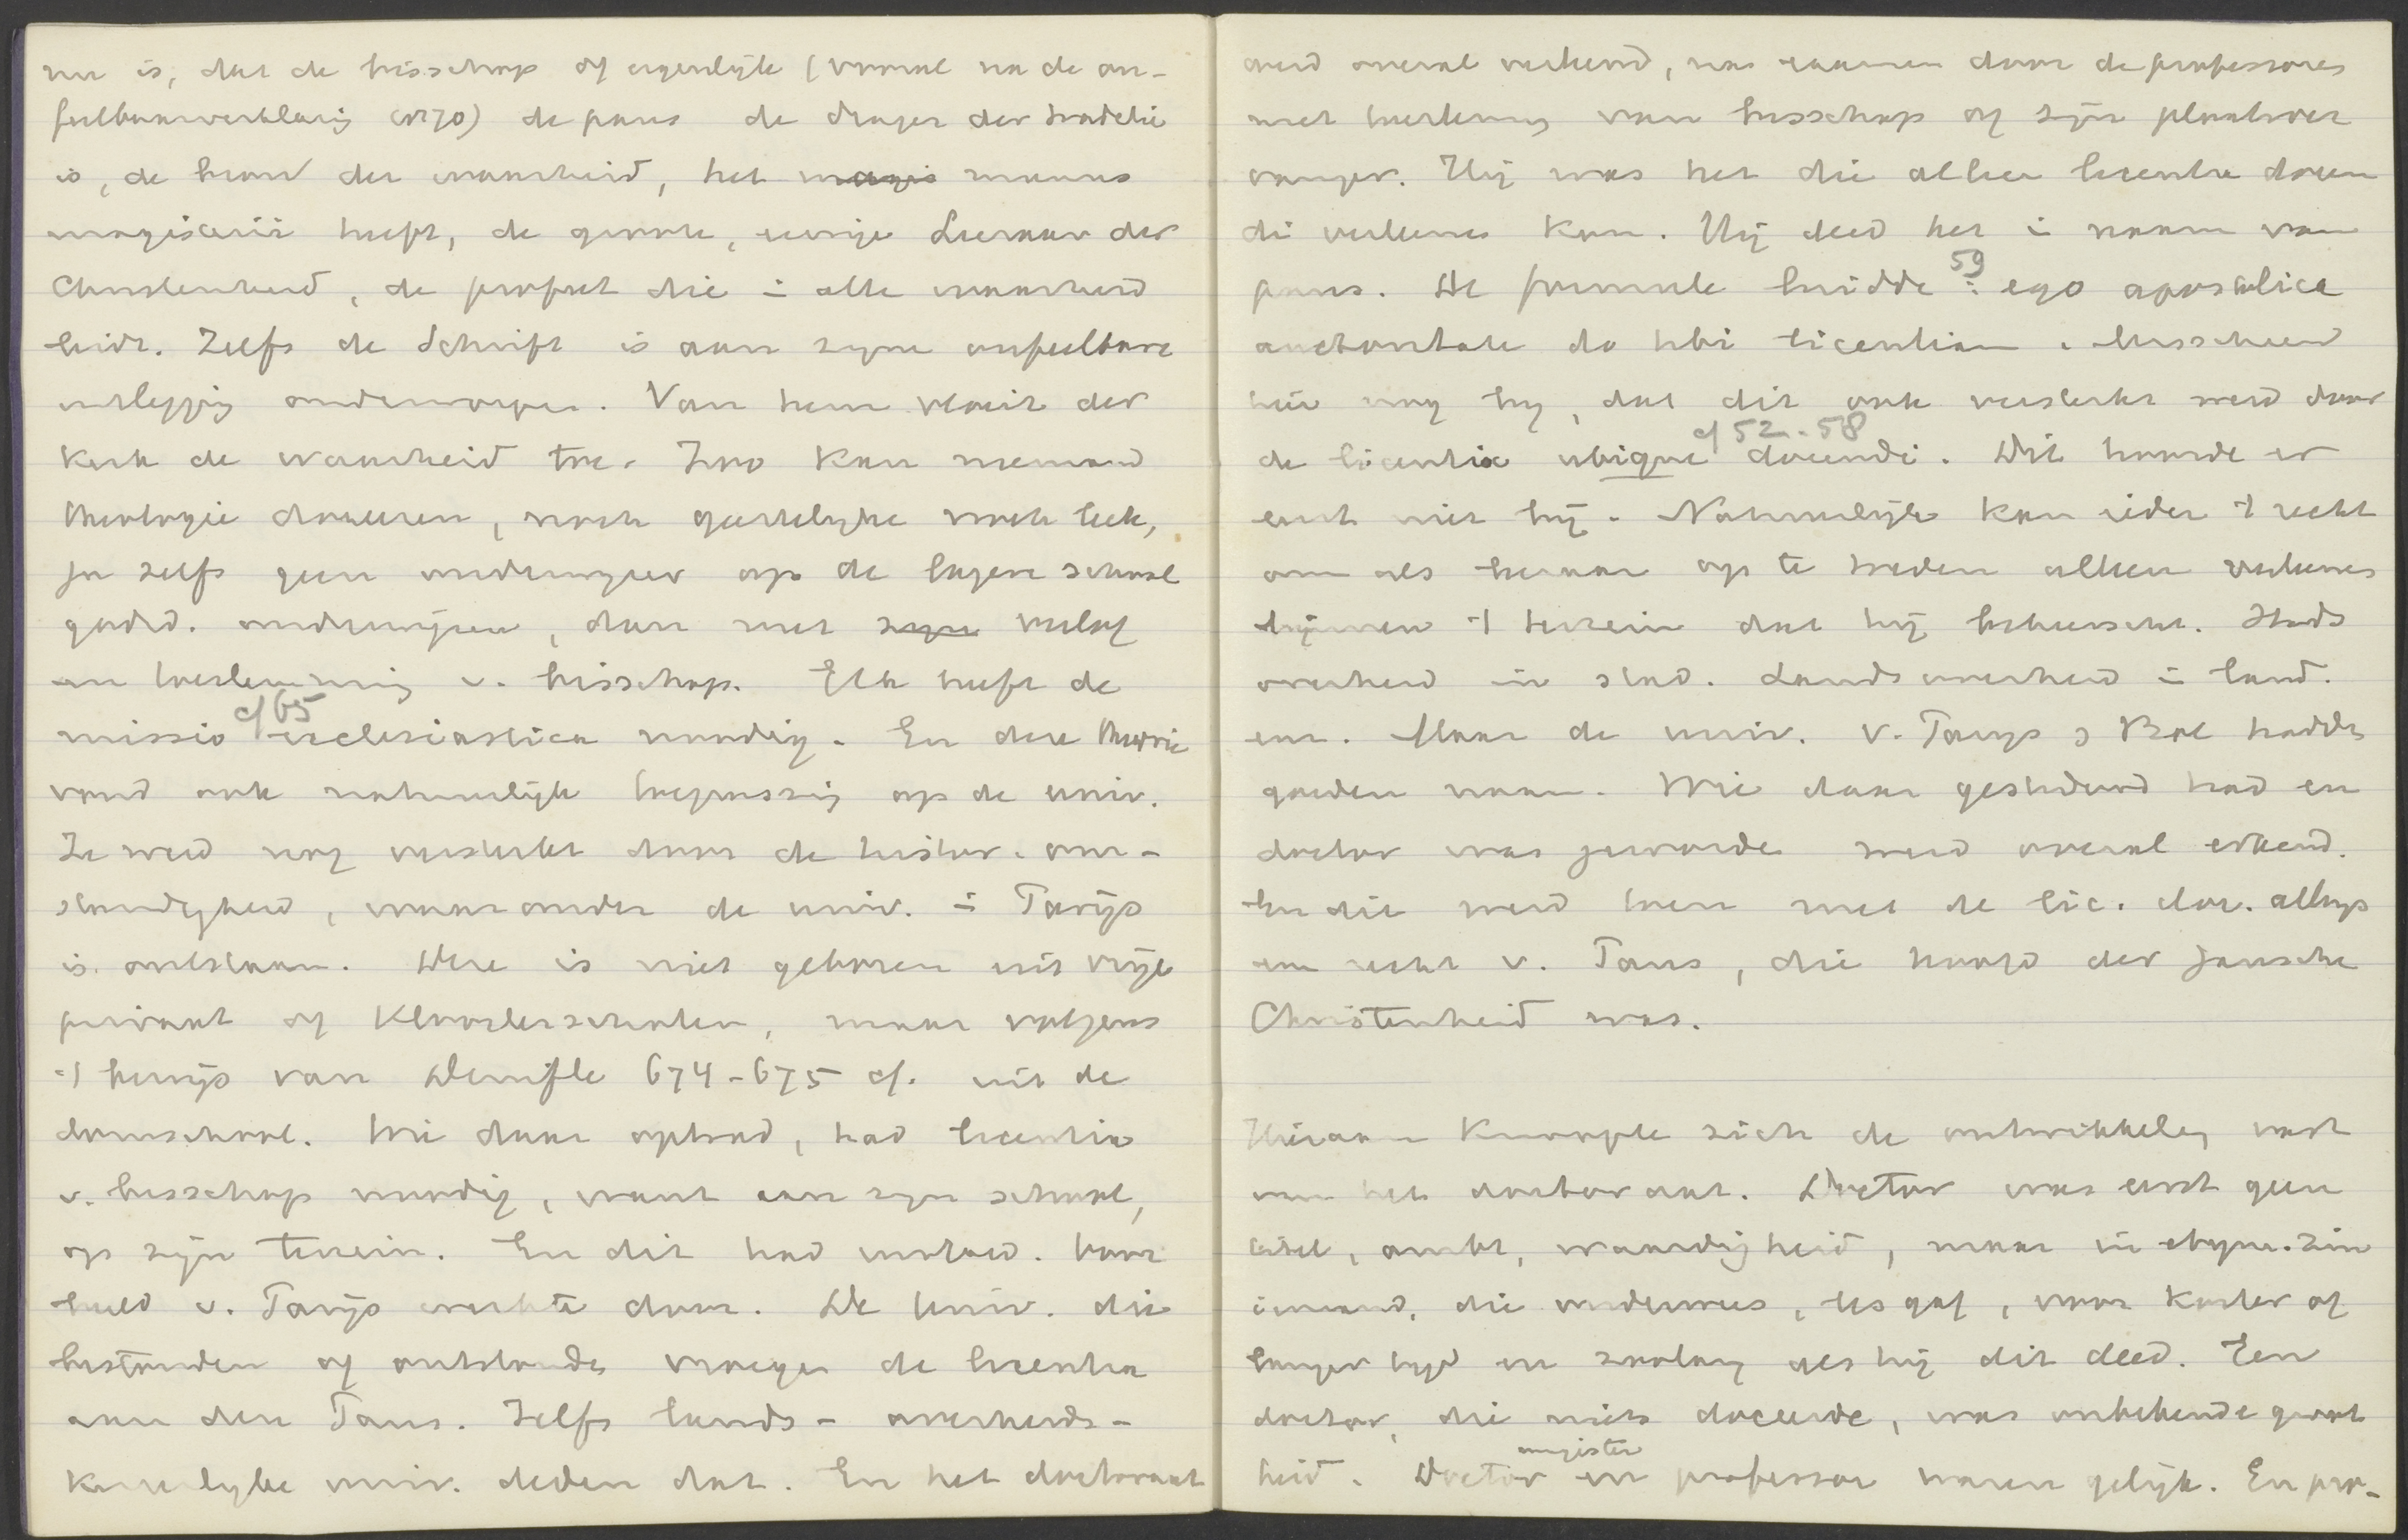 nu is, dat de bisschop of eigenlijk (vooral na de on-
feilbaarverklaring 1870) de paus de drager der traditie
is, de bron der waarheid, het magis munus
magisterii heeft, de groote, eenige Leeraar der
Christenheid, de profeet die in alle waarheid
leidt. Zelfs de Schrift is aan zijne onfeilbare
uitlegging onderworpen. Van hem vloeit der
Kerk de waarheid toe. Zoo kan niemand
theologie doceeren, noch geestelijke noch leek,
ja zelfs geen onderwijzer op de lagere school
godsd. onderwijzen, dan met zijn verlof
en toestemming v. bisschop. Elk heeft de
cf 65
missio ecclesiastica noodig. En deze theorie
vond ook natuurlijk toepassing op de univ.
Ze werd nog versterkt door de histor. om-
standigheid, waaronder de univ. in Parijs
is ontstaan. Deze is niet geboren uit vrije
privaat of Kloosterscholen, maar volgens
't bewijs van Denifle 674-675 cf. uit de
domschool. Wie daar optrad, had licentia
v. bisschop noodig, want aan zijn school,
op zijn terrein. En dit had invloed. Voor
beeld v. Parijs werkte door. De Univ. die
bestonden of ontstonden vroegen de licentia
aan den Paus. Zelfs lands- overheids-
Keizerlijke univ. deden dat. En het doctoraat
werd overal verleend, na examen door de professores
met toestemming van bisschop of zijn plaatsver
vanger. Hij was het die alleen licentia docen
di verleenen kon. Hij deed het in naam van
59
paus. De formule luidde: ego apostolica
auctoritate do tibi licentiam. Misschien
hier nog bij, dat dit ook versterkt werd door
cf 52-58
de licentia ubique docendi. Dit hoorde er
eerst niet bij. Natuurlijk kan ieder 't recht
om als leeraar op te treden alleen verleenen
binnen 't terrein dat hij beheerscht. Stads
overheid in stad. Landsoverheid in land.
enz. Maar de univ. v. Parijs & Bol hadden
goeden naam. Wie daar gestudeerd had en
doctor was geworden werd overal erkend.
En dit werd toen met de lic. doc. alles
een recht v. Paus, die hoofd der gansche
Christenheid was.
Hieraan knoopte zich de ontwikkeling vast
van het doctoraat. Doctor was eerst geen
titel, ambt, waardigheid, maar in etym. zin
iemand, die onderwees, les gaf, voor korter of
langer tijd en zoolang als hij dit deed. Een
doctor, die niets doceerde, was onbekende groot
magister
heid. Doctor en professor waren gelijk. En pro-